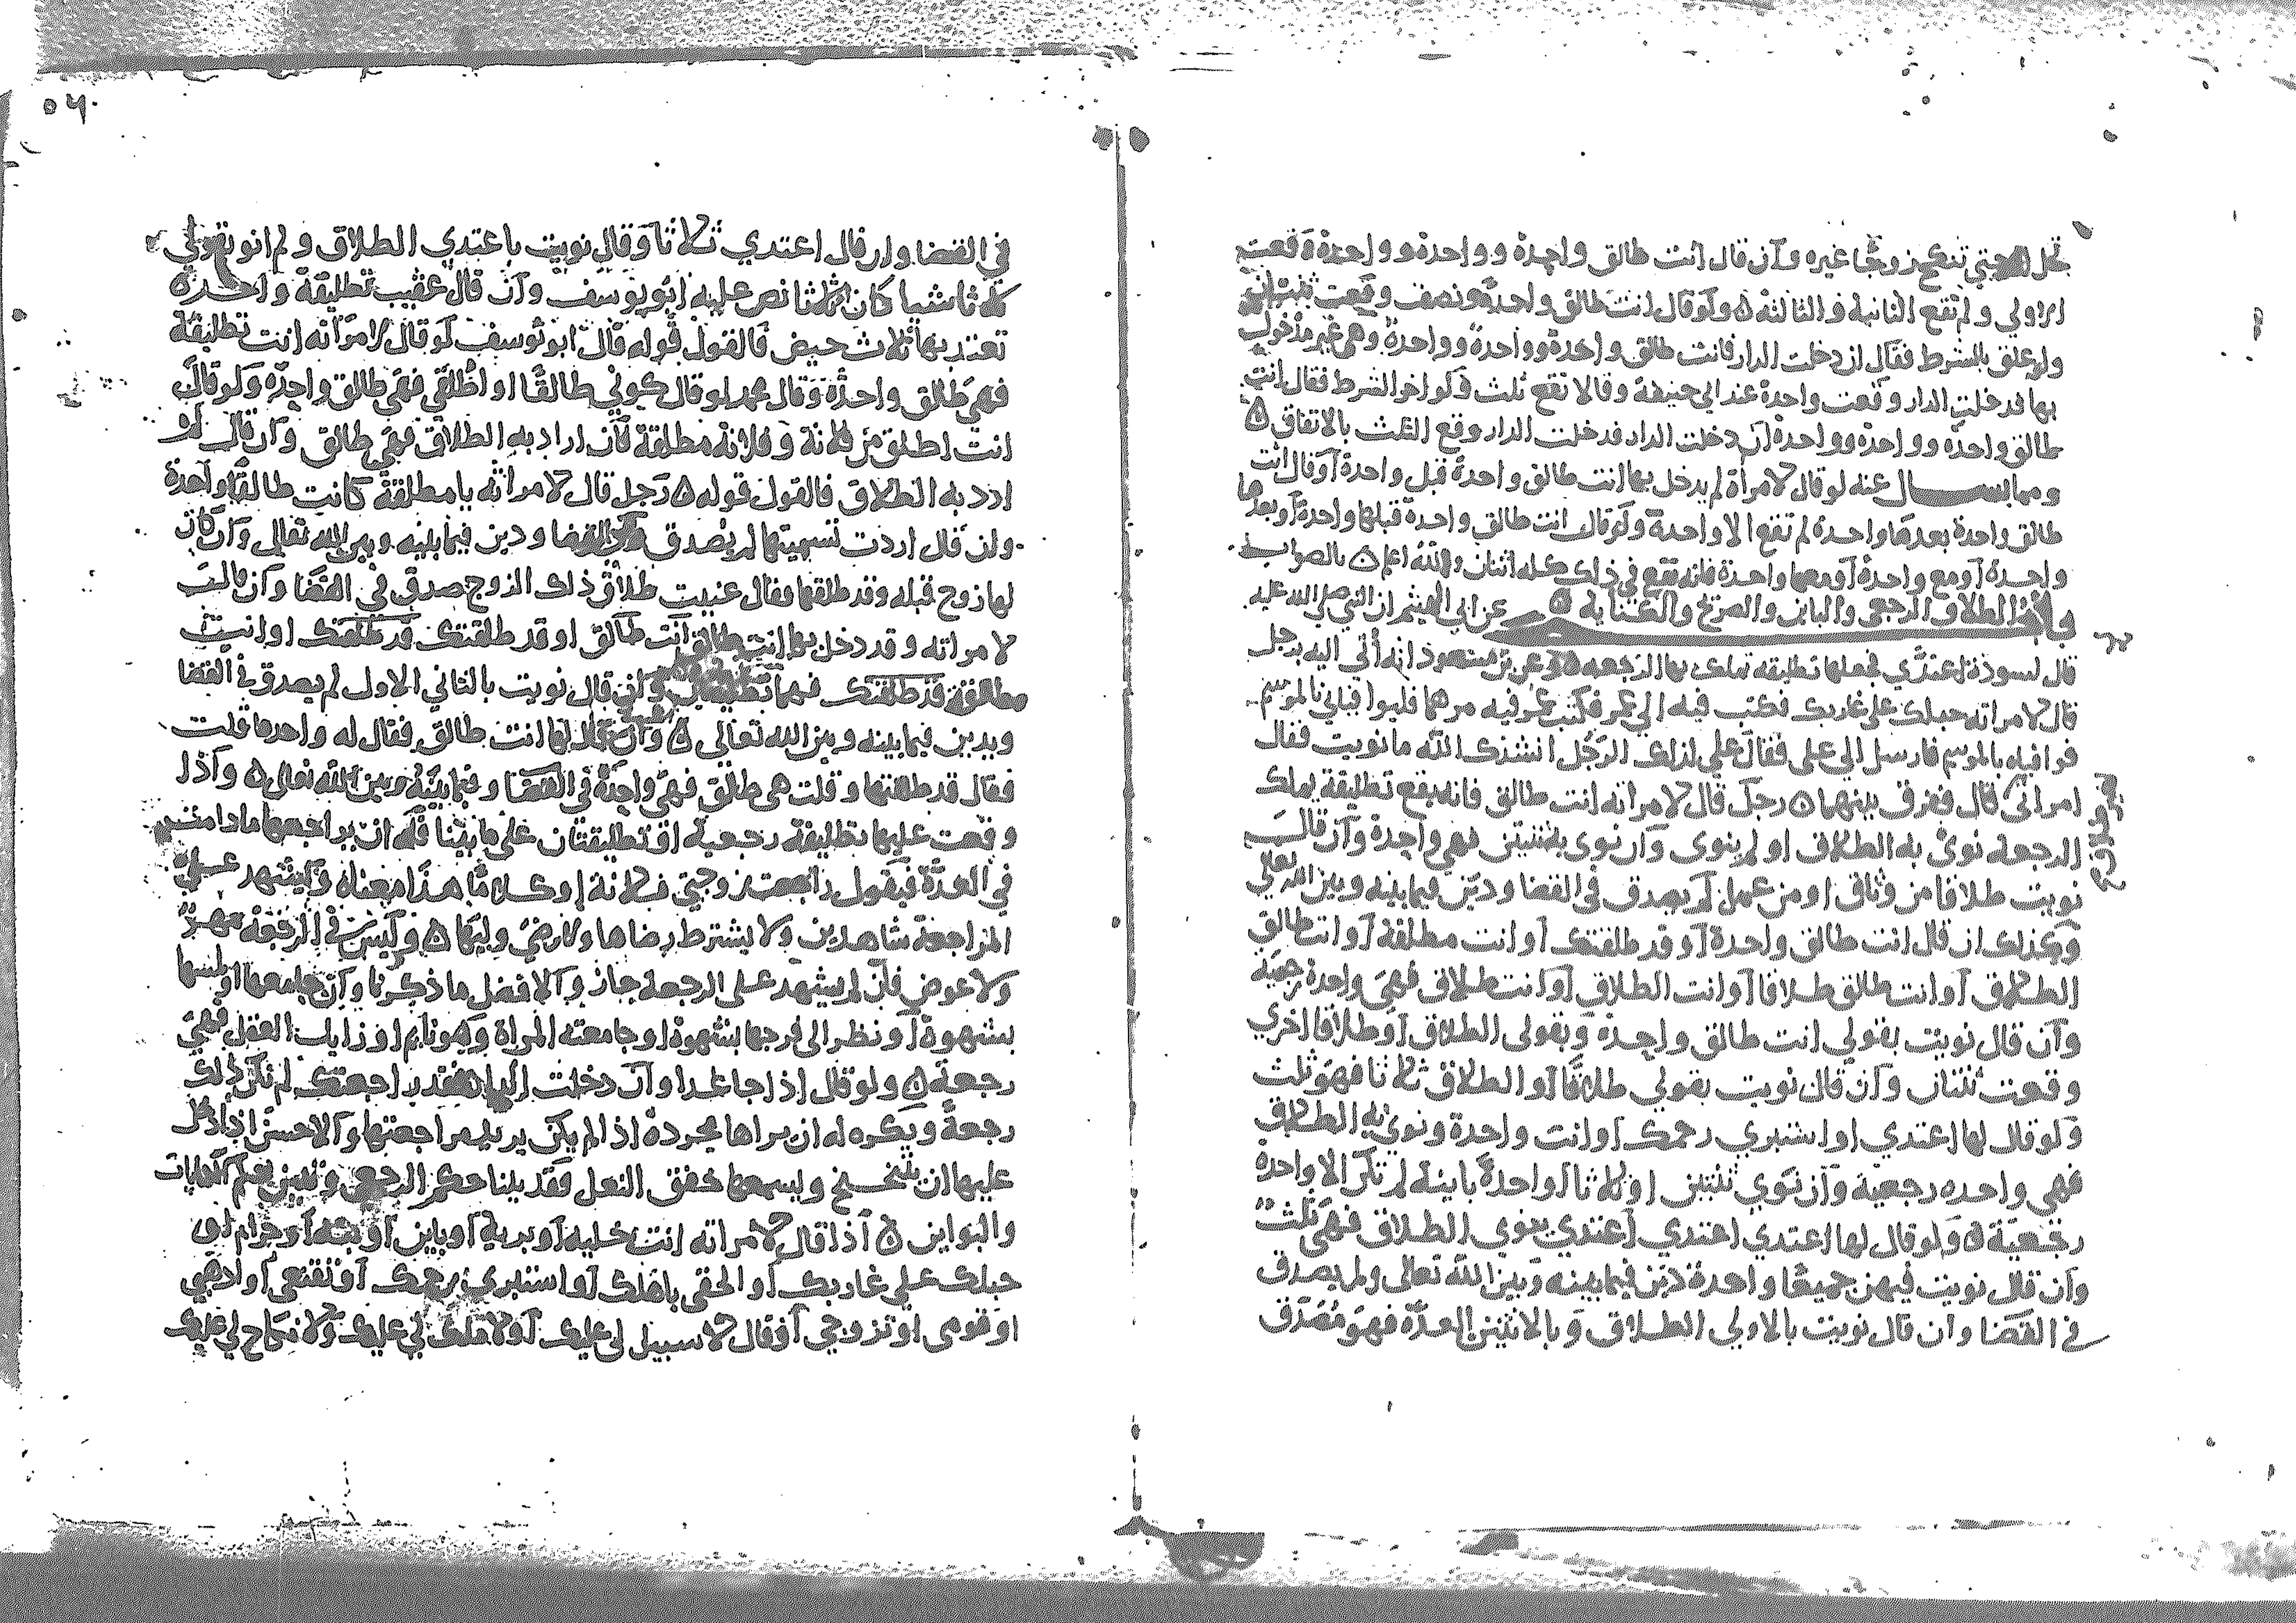 تحل له حتى تنكح زوجا غيره وان قال انت طالق واحدة وواحدة وواحدة وقعت
الاولى ولم تقع الثانية والثالثة ه ولو قال انت طالق واحدة ونصف وقعت ثنتان
ولو علق بالشرط فقال ان دخلت الدار فانت طالق واحدة وواحدة وواحدة وهي غير مدخول
بها فدخلت الدار وقعت واحدة عند ابي حنيفة وقالا تقع ثلث ولو اخر الشرط فقال انت
طالق واحدة وواحدة وواحدة ان دخلت الدار فدخلت الدار وقع الثلث بالاتفاق ه
ومما يسال عنه لو قال لامراة لم يدخل بها انت طالق واحدة قبل واحدة او قال انت
طالق واحدة بعدها واحدة لم تقع الا واحدة ولو قال انت طالق واحدة قبلها واحدة او بعد
واحدة او مع واحدة او معها واحدة فانه تقع في ذلك كله اثنتان والله اعلم ه بالصواب
في الطلاق الرجعي والباين والصريح والكناية ه عن ابي الهيثم ان النبي صلى الله عليه
قال لسودة اعتدي فجعلها تطليقه تملك بها الرجعه ه وعن بن مسعود انه أتي اليه برجل
قال لامراته حبلك على غاربك فكتب فيه الي عمر فكتب عمر فيه مرهما فليوافياني بالموسم
فوافياه بالموسم فارسل الي علي فقال علي لذلك الرجل انشدك الله ما نويت فقال
امراتي قال ففرق بينهما ه رجل قال لامراته انت طالق فانه يقع تطليقة يملك
الرجعه نوى به الطلاق او لم ينوي وان نوى به ثنتين فهي واحدة وان قال
نويت طلاقا من وثاق او من عمل لم يصدق في القضا ودين فيما بينه وبين الله تعالي
وكذلك ان قال انت طالق واحدة او قد طلقتك او انت مطلقة او انت طالق
الطلاق او انت طالق طلاقا او انت الطلاق او انت طلاق فهي واحدة رجعية
وان قال نويت بقولي انت طالق واحده وبقولى الطلاق او طلاقا اخرى
وقعت ثنتان وان قال نويت بقولي طلاقا او الطلاق ثلاثا فهو ثلث
ولو قال لها اعتدي او استبري رحمك او انت واحدة ونوى به الطلاق
فهي واحده رجعية وان نوي ثنتين او ثلاثا او واحدة باينة لم تكن الا واحدة
رجعية ه ولو قال لها اعتدي اعتدي اعتدي ينوي الطلاق فهي ثلث
وان قال نويت فيهن جميعا واحدة دين فيما بينه وبين الله تعالى ولم يصدق
في القضا وان قال نويت بالاولي الطلاق وبالاثنتين العدة فهو مصدق
٥٦
في القضا وان قال اعتدي ثلاثا وقال نويت باعتدي الطلاق ولم انو بقولي
ثلاثا شيا كان ثلاثا نص عليه ابو يوسف وان قال عقيب تطليقة واحدة
تعتد بها ثلاث حيض فالقول قوله قال ابو يوسف لو قال لامراته انت تطليقة
فهي طالق واحدة وقال محمد لو قال كوني طالقا او اطلقي فهي طالق واحده ولو قال
انت اطلق من فلانة وفلانه مطلقة فان اراد به الطلاق فهي طالق وان قال لم
ارد به الطلاق فالقول قوله ه رجل قال لامراته يا مطلقة كانت طالقا واحدة
وان قال اردت تسميتها لم يصدق في القضا ودين فيما بينه وبين الله تعالى وان كان
لها زوج قبله وقد طلقها فقال عنيت طلاق ذلك الزوج صدق في القضا وان قال
لامراته وقد دخل بها انت طالق انت طالق او قد طلقتك قد طلقتك او انت
طالق قد طلقتك فهما تطليقتان وان قال نويت بالثاني الاول لم يصدق في القضا
ويدين فيما بينه وبين الله تعالى ه وان قال لها انت طالق فقال له واحد ما قلت
فقال قد طلقتها او قلت هي طالق فهي واحدة في القضا وفيما بينه وبين الله تعالى ه واذا
وقعت عليها تطليقة رجعية او تطليقتان على ما بينا فله ان يراجعها ما دامت
في العدة فيقول راجعت زوجتي فلانة او كلاما هذا معناه وليشهد على
المراجعة شاهدين ولا يشترط رضاها ولا رضى وليها ه وليس في الرجعة مهر
ولا عوض فان لم يشهد على الرجعة جاز والافضل ما ذكرنا وان جامعها او لمسها
بشهوة او نظر الى فرجها بشهوة او جامعته المراة وهو نايم او زايل العقل فهي
رجعة ه ولو قال اذا جا غدا وان دخلت الدار فقد راجعتك لم تكن ذلك
رجعة ويكره له ان يراها مجردة اذا لم يكن يريد مراجعتها والاحسن اذا دخل
عليها ان يتنحنح ويسمعها خفق النعل فقد بينا حكم الرجعي ونبين بعد الكنايات
والبواين ه اذا قال لامراته انت خليه او برية او باين او بتة او حرام او
حبلك على غاربك او الحقي باهلك او استبري رحمك او تقنعي او اذهبي
او قومي او تزوجي او قال لا سبيل لى عليك او لا ملك لي عليك ولا نكاح لي عليك